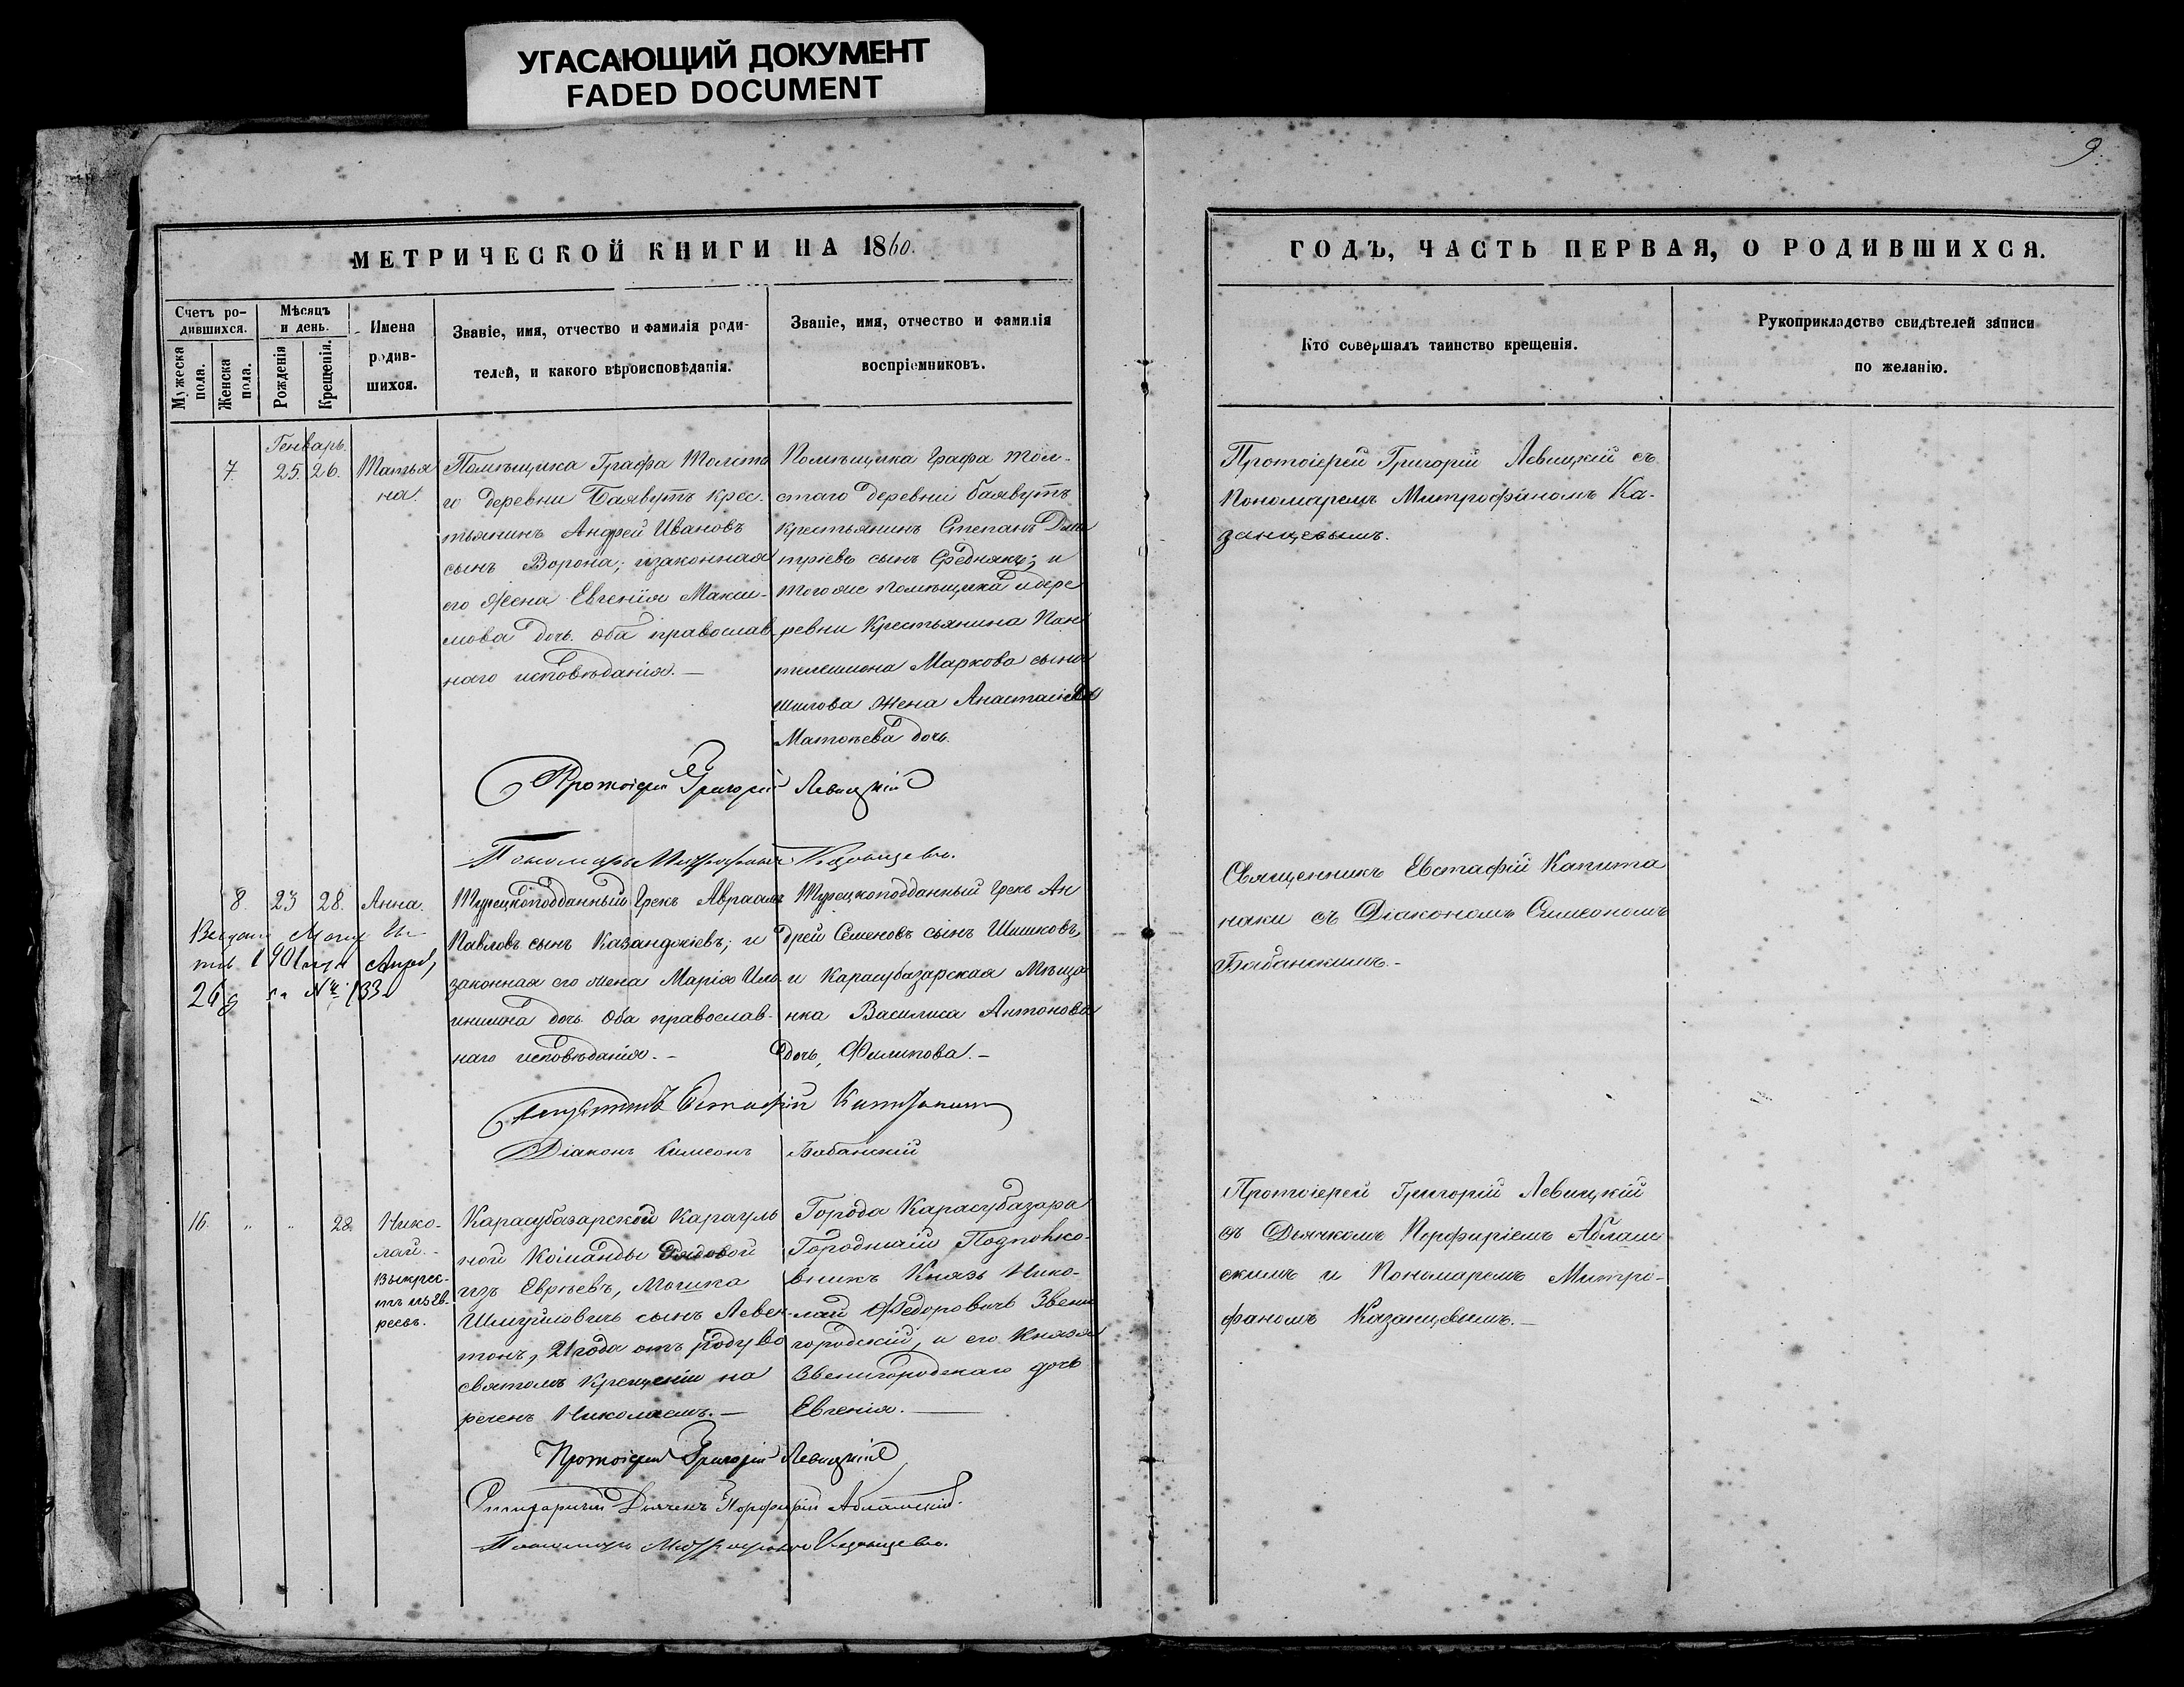 УГАСАЮЩИЙ ДОКУМЕНТ
FADED DOCUMENT
9.
МЕТРИЧЕСКОЙ КНИГИ НА 1860.
Счетъ ро-
дившихся.
Мужеска
пола.
Женска
пола.
Мѣсяцъ
и день.
Рожденія
Крещенія.
Имена
родив-
шихся.
Званіе, имя, отчество и фамилія роди-
телей, и какого вѣроисповѣданія.
Званіе, имя, отчество и фамилія
воспріемниковъ.
ГОДЪ, ЧАСТЬ ПЕРВАЯ, О РОДИВШИХСЯ.
Кто совершалъ таинство крещенія.
Рукоприкладство свидѣтелей записи
по желанію.
Генварь.
7. 25. 26.
Татья
на.
Помѣщика Графа Толсто
го деревни Баявутъ крес-
тьянинъ Андрей Ивановъ
сынъ Ворона; и законная
его жена Евгенія Макси-
мова дочь. Оба православ-
наго исповѣданія.—
Помѣщика Графа Тол-
стаго деревни Баявутъ
крестьянинъ Степанъ Дми
тріевъ сынъ Середнякъ; и
тогоже помѣщика и дере
ревни Крестьянина Пан
телеимона Маркова сына
Шилова жена Анастасія
Матѳеева дочь.
Протоіерей Григорій Левицкій съ
Пономаремъ Митрофаномъ Ка-
занцевымъ.
Протоіерей Григорій Левицкій
Пономарь Митрофанъ Казанцевъ.
8. 23 28. Анна.
1901 года Апрѣл
26 за № 133
Турецкоподданный Грекъ Авраамъ
Павловъ сынъ Казанджіевъ; и
законная его жена Марія Иль-
инична дочь. Оба православ-
наго исповѣданія.—
Турецкоподданный Грекъ Ан
дрей Семеновъ сынъ Шишковъ,
и Карасубазарская Мѣща
нка Василиса Антонова
дочь, Филипова.—
Священникъ Евстафій Капита
наки съ Діакономъ Симеономъ
Бабанскимъ.—
Священникъ Евстафій Капитанаки
Діаконъ Симеонъ Бабанскій
16. " " 28
Нико-
лай.—
Выкрес-
тъ изъ Ев-
реевъ.
Карасубазарской Карауль
ной Команды Рядовой
изъ Евреевъ, Мошка
Шмуйловичь сынъ Левен
тонъ, 21 года отъ роду во
святомъ Крещеніи на
реченъ Николаемъ.—
Города Карасубазара
Городничій Подполко-
вникъ Князь Нико-
лай Ѳедоровичь Звени
городскій, и его Князя
Звенигородскаго дочь
Евгенія.—
Протоіерей Григорій Левицкій
съ Дьячкомъ Порфиріемъ Аблам
скимъ и Пономаремъ Митро-
фаномъ Казанцевымъ.—
Протоіерей Григорій Левицкій
Дьячекъ Порфирій Абламскій.
Пономарь Митрофанъ Казанцевъ.